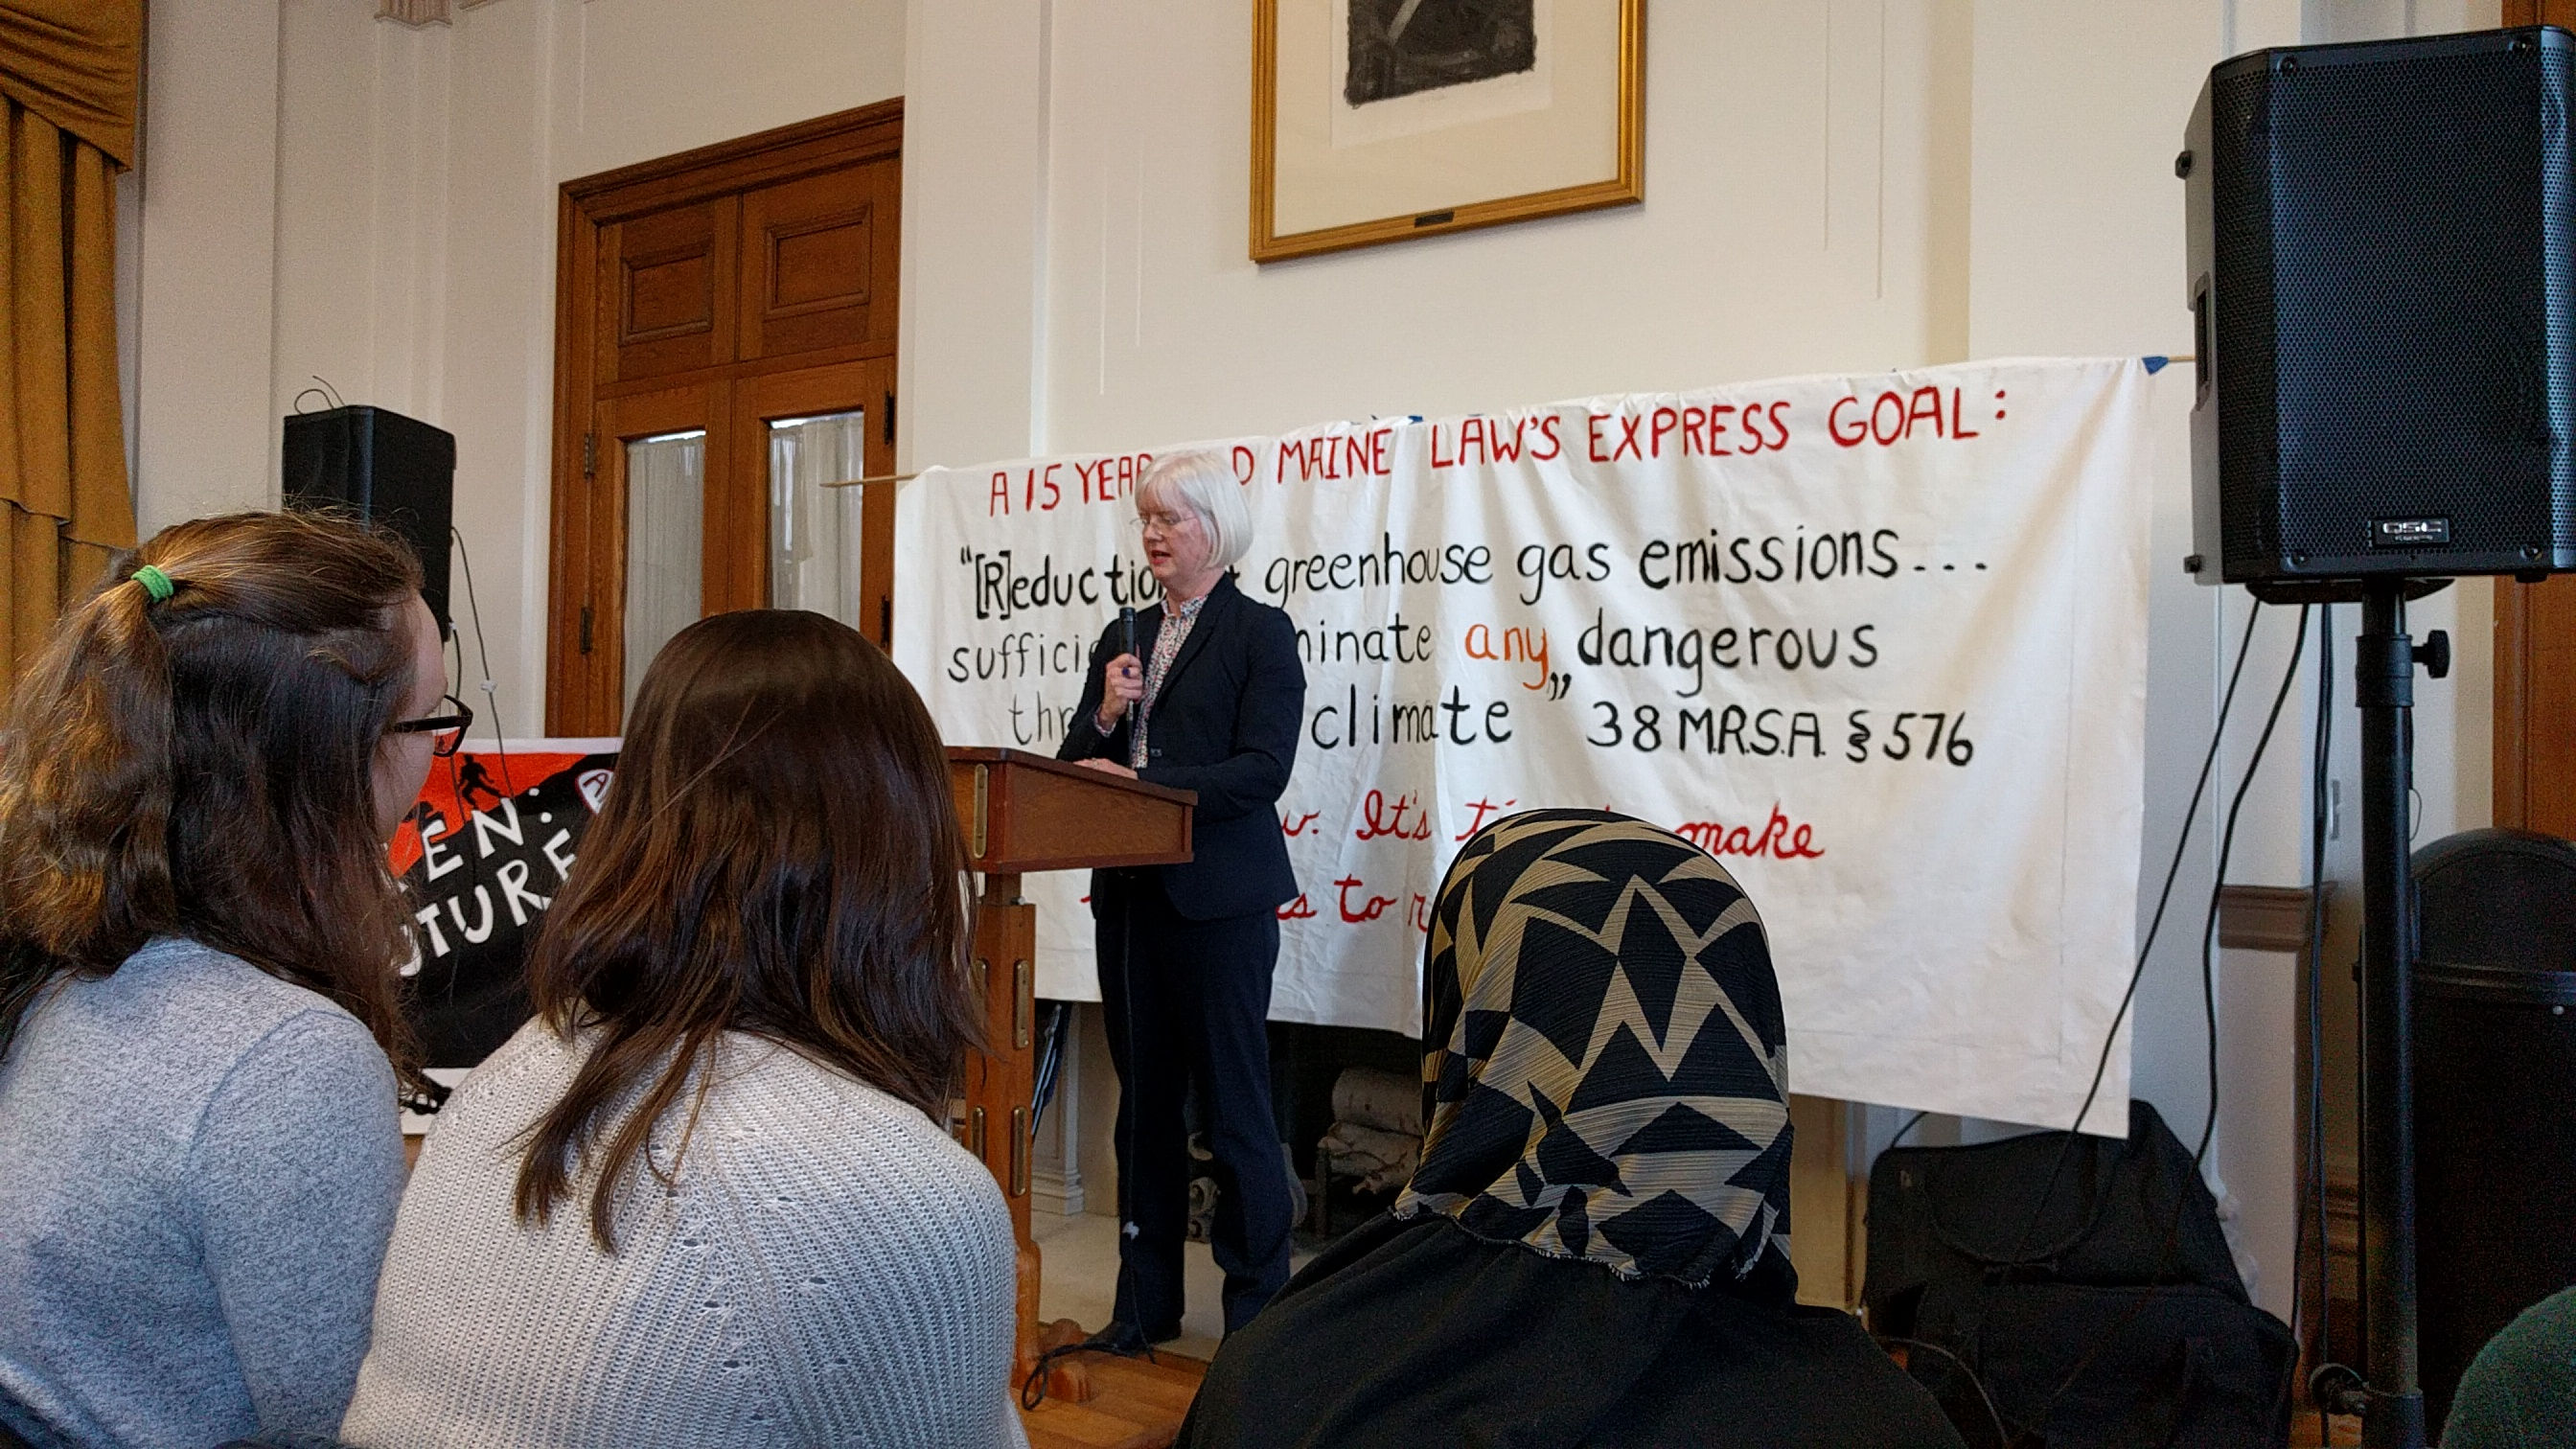 A 15 YEAR D MAINE LAW'S EXPRESS GOAL:
"[R]eductio greenhouse gas emissions...
suffici minate any dangerous
thr climate" 38 M.R.S.A. § 576
It's make
to
EN:
UTURE
QSC